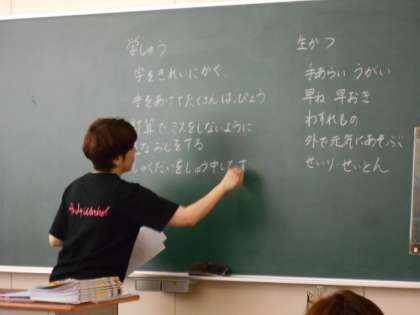 学しゅう
字をきれいにかく
手をあげてたくさんはっぴょう
計算でミスをしないように
見なおしをする
しゅくだいをしゅう中してす
生かつ
手あらい うがい
早ね 早おき
わすれもの
外で元気にあそぶ
せいり・せいとん